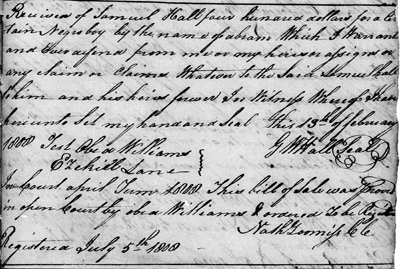 Received of Samuel Hall four hundred dollars for a Cer
tain Negro boy by the name of abram Which I Warrant
and Ever defend from me or my heirs assigns or
any claim or Claims Whatever to the said Samuel Hall
him and his heirs forever In Witness Whereof I have
hereunto Set my hand and Seal This 13th of february
1808 Test Obed Williams G W Hall Seal
Ezekill Lane
In Court april Term 1808 This bill of Sale was proved
in open Court by obed Williams & ordered To be
Nath
Registered July 5th 1808